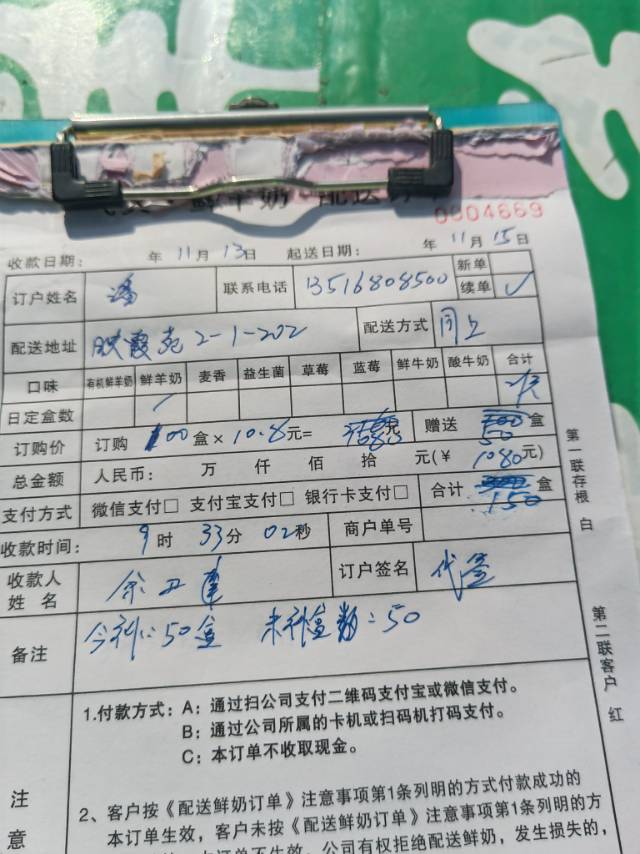 鲜羊奶 配送订
0004669
收款日期： 年 11月 13日 起送日期： 年 11月 15日
订户姓名 潘 联系电话 13516808500 新单
续单 ✓
配送地址 映霞苑 2-1-202 配送方式 同上
口味 有机鲜羊奶 鲜羊奶 麦香 益生菌 草莓 蓝莓 鲜牛奶 酸牛奶 合计
日定盒数 1
订购价 订购 100 盒× 10.8 元= 元 赠送 50 盒
总金额 人民币： 万 仟 佰 拾 元(¥ 1080 元)
支付方式 微信支付□ 支付宝支付□ 银行卡支付□ 合计 150 盒
收款时间： 9 时 33分 02秒 商户单号
收款人姓名 订户签名 代签
备注 50盒 50
注意
1.付款方式：A：通过扫公司支付二维码支付宝或微信支付。
B：通过公司所属的卡机或扫码机打码支付。
C：本订单不收取现金。
2、客户按《配送鲜奶订单》注意事项第1条列明的方式付款成功的
本订单生效，客户未按《配送鲜奶订单》注意事项第1条列明的方
本订单不生效，公司有权拒绝配送鲜奶，发生损失的，
第一联存根 白
第二联客户 红